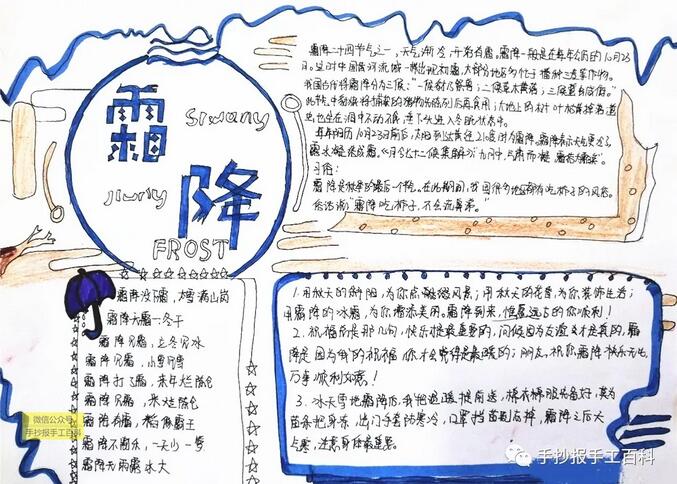 霜降
Siwang
Jiang
FROST
霜降二十四节气之一,天气渐冷,开始有霜。霜降一般是在每年公历的10月23
日。这时中国黄河流域一带出现初霜,大部分地区多忙于播种三麦等作物。
我国古代将霜降分为三候:"一候豺乃祭兽;二候草木黄落;三候蛰虫咸俯。"
此节中豺狼将捕获的猎物先陈列后再食用;大地上的树叶枯黄掉落
蛰虫也全在洞中不动不食,垂下头进入冬眠状态中。
每年阳历10月23日前后,太阳到达黄经210度时为霜降。霜降表示天气更冷了,
露水凝结成霜。《月令七十二候集解》:"九月中,气肃而凝,露结为霜矣"
习俗:
霜降是秋季的最后一个节气。在此期间,我国很多地区都有吃柿子的风俗。
俗话说:"霜降吃柿子,不会流鼻涕。"
霜降没下霜,大雪满山岗
霜降无霜一冬干
霜降见霜,立冬见冰
霜降见霜,小雪见雪
霜降打了霜,来年烂陈仓
霜降见霜,米烂陈仓
霜降有霜,稻像霸王
霜降不割禾,一天少一箩
霜降无雨露水大
1. 用秋天的斜阳,为你点缀风景;用秋天的花香,为你装饰生活;
用霜降的冰霜,为你增添美丽。霜降到来,恒是远古的你顺利!
2. 祝福历是那几句,快乐健康是主要的,问候因为友谊才是真的,霜
降是因为我的祝福你才会觉得是最暖的;朋友,祝你霜降快乐无比,
万事顺利如意!
3. 冰天雪地霜降临,我把温暖提前送,棉衣棉服装备好,莫为
苗条把身冻,出门手套防寒冷,口罩挡害别忘掉,霜降之后大
点寒,注意身体最是要。
微信公众号
手抄报手工百科
手抄报手工百科